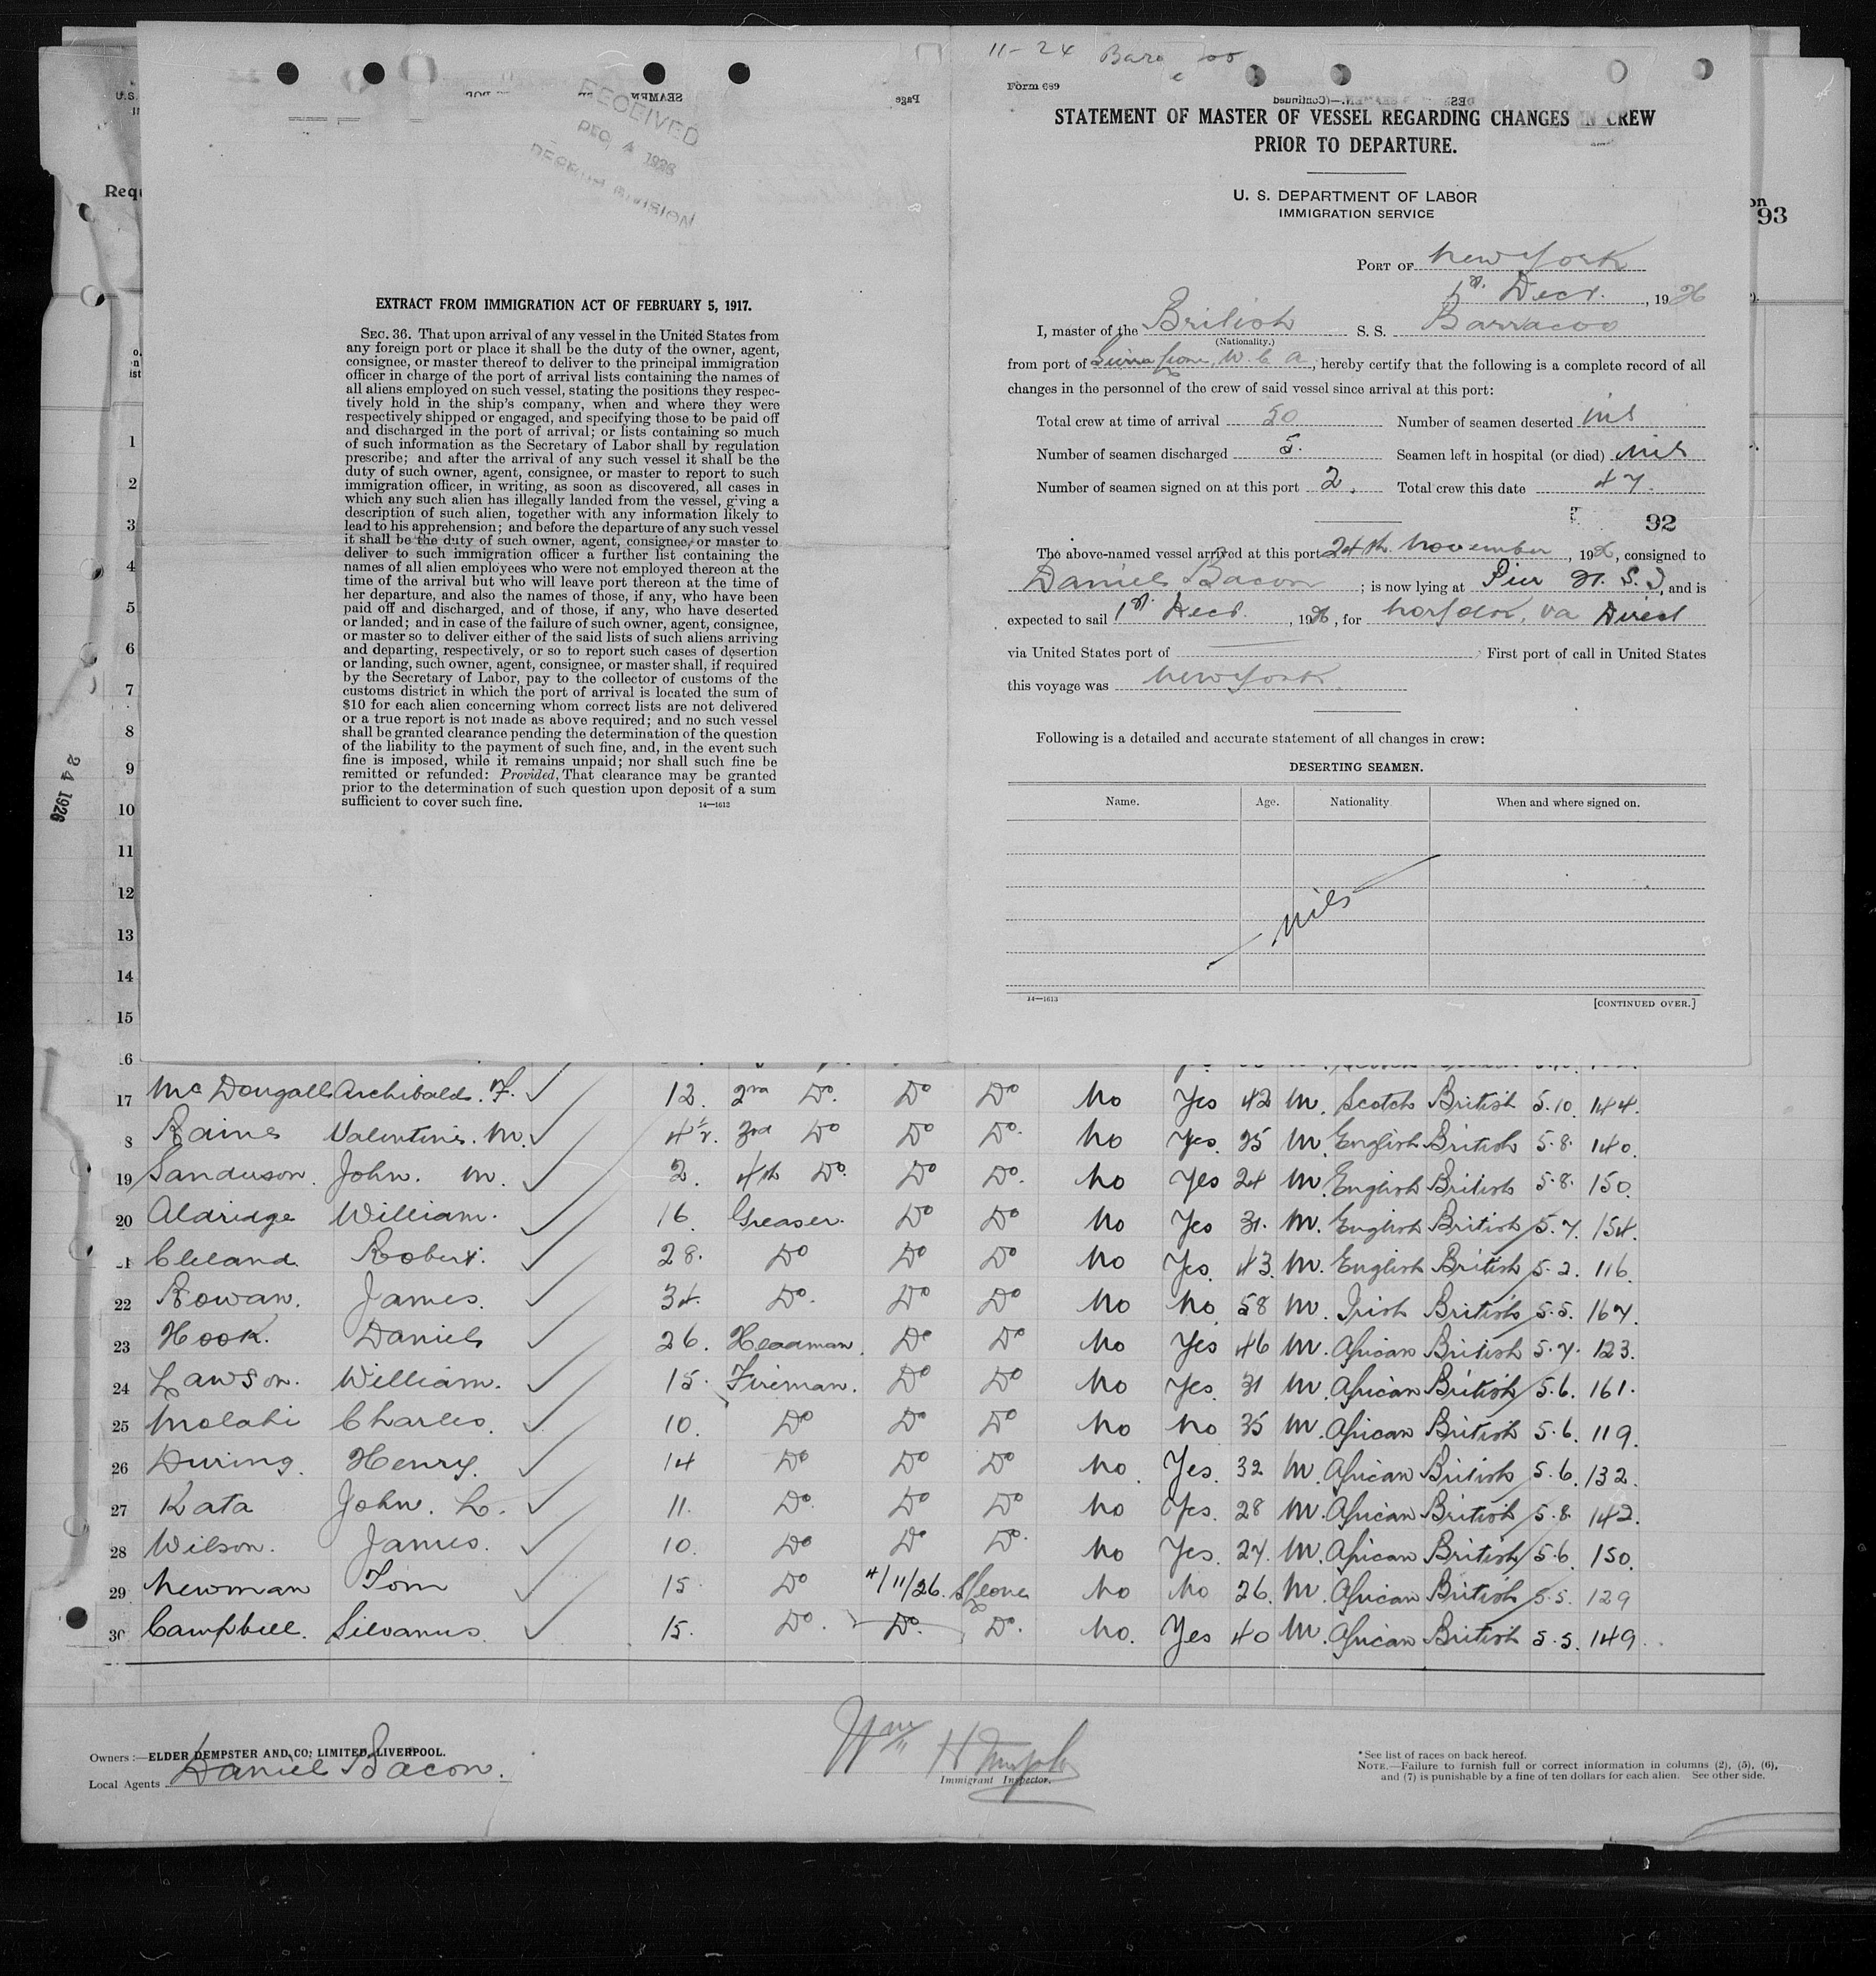 RECEIVED
DEC 4 1926
EXTRACT FROM IMMIGRATION ACT OF FEBRUARY 5, 1917.
SEC. 36. That upon arrival of any vessel in the United States from
any foreign port or place it shall be the duty of the owner, agent,
consignee, or master thereof to deliver to the principal immigration
officer in charge of the port of arrival lists containing the names of
all aliens employed on such vessel, stating the positions they respec-
tively hold in the ship's company, when and where they were
respectively shipped or engaged, and specifying those to be paid off
and discharged in the port of arrival; or lists containing so much
of such information as the Secretary of Labor shall by regulation
prescribe; and after the arrival of any such vessel it shall be the
duty of such owner, agent, consignee, or master to report to such
immigration officer, in writing, as soon as discovered, all cases in
which any such alien has illegally landed from the vessel, giving a
description of such alien, together with any information likely to
lead to his apprehension; and before the departure of any such vessel
it shall be the duty of such owner, agent, consignee, or master to
deliver to such immigration officer a further list containing the
names of all alien employees who were not employed thereon at the
time of the arrival but who will leave port thereon at the time of
her departure, and also the names of those, if any, who have been
paid off and discharged, and of those, if any, who have deserted
or landed; and in case of the failure of such owner, agent, consignee,
or master so to deliver either of the said lists of such aliens arriving
and departing, respectively, or so to report such cases of desertion
or landing, such owner, agent, consignee, or master shall, if required
by the Secretary of Labor, pay to the collector of customs of the
customs district in which the port of arrival is located the sum of
$10 for each alien concerning whom correct lists are not delivered
or a true report is not made as above required; and no such vessel
shall be granted clearance pending the determination of the question
of the liability to the payment of such fine, and, in the event such
fine is imposed, while it remains unpaid; nor shall such fine be
remitted or refunded: Provided, That clearance may be granted
prior to the determination of such question upon deposit of a sum
sufficient to cover such fine.
14—1613
11-24
Form 689
STATEMENT OF MASTER OF VESSEL REGARDING CHANGES IN CREW
PRIOR TO DEPARTURE.
U. S. DEPARTMENT OF LABOR
IMMIGRATION SERVICE
93
PORT OF New York
1st. Decr. , 1926
I, master of the British S. S. Barracoo
(Nationality.)
from port of Sierra Leone, W. C. A, hereby certify that the following is a complete record of all
changes in the personnel of the crew of said vessel since arrival at this port:
Total crew at time of arrival 50 Number of seamen deserted nil
Number of seamen discharged 5. Seamen left in hospital (or died) nil
Number of seamen signed on at this port 2. Total crew this date 47.
92
The above-named vessel arrived at this port 24th. November, 1926, consigned to
Daniel Bacon ; is now lying at Pier 21. S. , and is
expected to sail 1st. Decr. , 1926, for Norfolk, Va Direct
via United States port of First port of call in United States
this voyage was New York.
Following is a detailed and accurate statement of all changes in crew:
DESERTING SEAMEN.
Name. Age. Nationality When and where signed on.
nil
14—1613 [CONTINUED OVER.]
24 1926
1
2
3
4
5
6
7
8
9
10
11
12
13
14
15
17 McDougall Archibald. F. 12. 2nd Do. Do Do No Yes 42 M. Scotch British 5.10. 144.
8 Raine Valentine. M. 4½. 3rd Do Do Do. No Yes. 25 M. English British 5.8. 140.
19 Sanderson. John. M. 2. 4th Do. Do Do. No Yes 24 M. English British 5.8. 150.
20 Aldridge William. 16 Greaser. Do Do No Yes 31. M. English British 5.7. 154.
Cleland Robert. 28. Do Do Do No Yes. 43. M. English British 5.2. 116.
22 Rowan. James. 34. Do. Do Do No No 58 M. Irish British 5.5. 167.
23 Hook. Daniel 26. Headman. Do Do No Yes 46 M. African British 5.7. 123.
24 Lawson. William. 15. Fireman. Do Do No Yes. 31 M. African British 5.6. 161.
25 Malabi Charles. 10. Do Do Do No No 35 M. African British 5.6. 119.
26 During. Henry. 14 Do Do Do No. Yes. 32 M. African British 5.6. 132.
27 Kata John. L. 11. Do. Do Do No Yes. 28 M. African British 5.8. 142.
28 Wilson. James. 10. Do Do Do. No Yes. 27. M. African British 5.6. 150.
29 Newman Tom 15 Do 4/11/26. S/Leone No No 26. M. African British 5.5. 129
30 Campbell. Silvanus. 15. Do. Do. Do. No. Yes 40 M. African British 5.5. 149.
Owners:—ELDER DEMPSTER AND CO; LIMITED, LIVERPOOL.
Local Agents Daniel Bacon.
Wm H
Immigrant Inspector.
*See list of races on back hereof.
NOTE.—Failure to furnish full or correct information in columns (2), (5), (6),
and (7) is punishable by a fine of ten dollars for each alien. See other side.